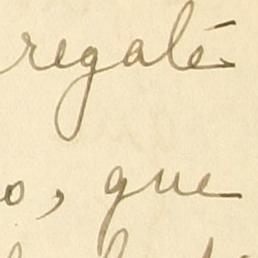 regalé
o, que